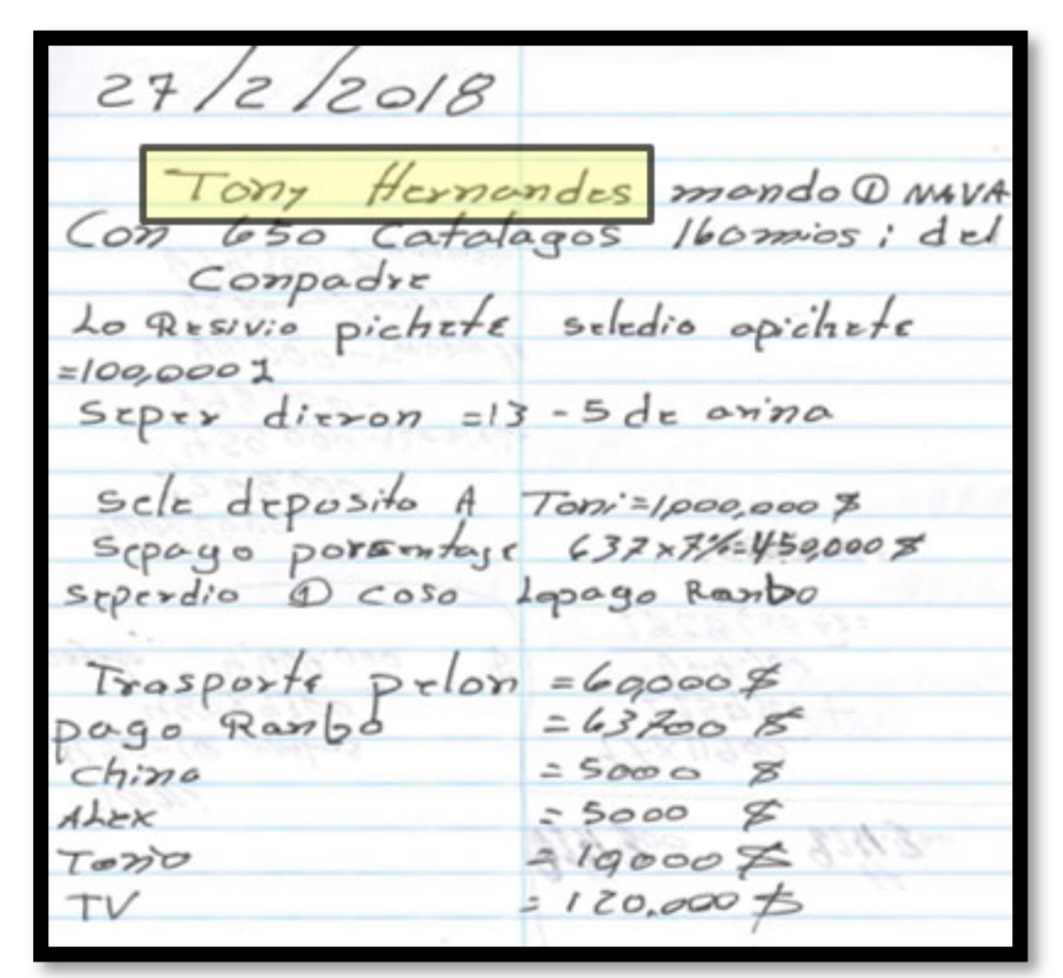 27/2/2018
Tony Hernandes mando ① NAVA
Con 650 Catalagos 160 mios; del
Conpadre
Lo Resivio pichete seledio apichete
=100,000 $
Seper dieron =13 - 5 de arina
sele deposito A Toni=1,000,000 $
Sepago porsentaje 637x7%=450,000 $
seperdio ① coso Lopago Ranbo
Trasporte pelon =60,000 $
pago Ranbo =63700 $
china =5000 $
ALEX =5000 $
=10,000 $
TV =120,000 $